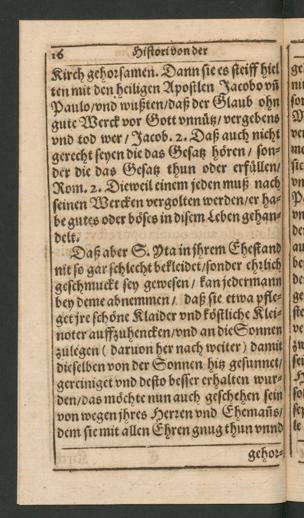 16 Histori von der
Kirch gehorsamen. Dann sie es steiff hiel
ten mit den heiligen Apostlen Jacobo vñ
Paulo/vnd wußten/daß der Glaub ohn
gute Werck vor Gott vnnütz/vergebens
vnd tod wer/Jacob. 2. Daß auch nicht
gerecht seyen die das Gesatz hören/son-
der die das Gesatz thun oder erfüllen/
Rom. 2. Dieweil einem jeden muß nach
seinen Wercken vergolten werden/er ha-
be gutes oder böses in disem Leben gehan-
delt.
Daß aber S. Yta in jhrem Ehestand
nit so gar schlecht bekleidet/sonder ehrlich
geschmuckt sey gewesen/kan jedermann
bey deme abnemmen/daß sie etwa pfle-
get jre schöne Klaider vnd köstliche Klei-
noter auffzuhencken/vnd an die Sonnen
zulegen (daruon her nach weiter) damit
dieselben von der Sonnen hitz gesunnet/
gereiniget vnd desto besser erhalten wur-
den/das möchte nun auch geschehen sein
von wegen jhres Herren vnd Ehemañs/
dem sie mit allen Ehren gnug thun vnnd
gehor-